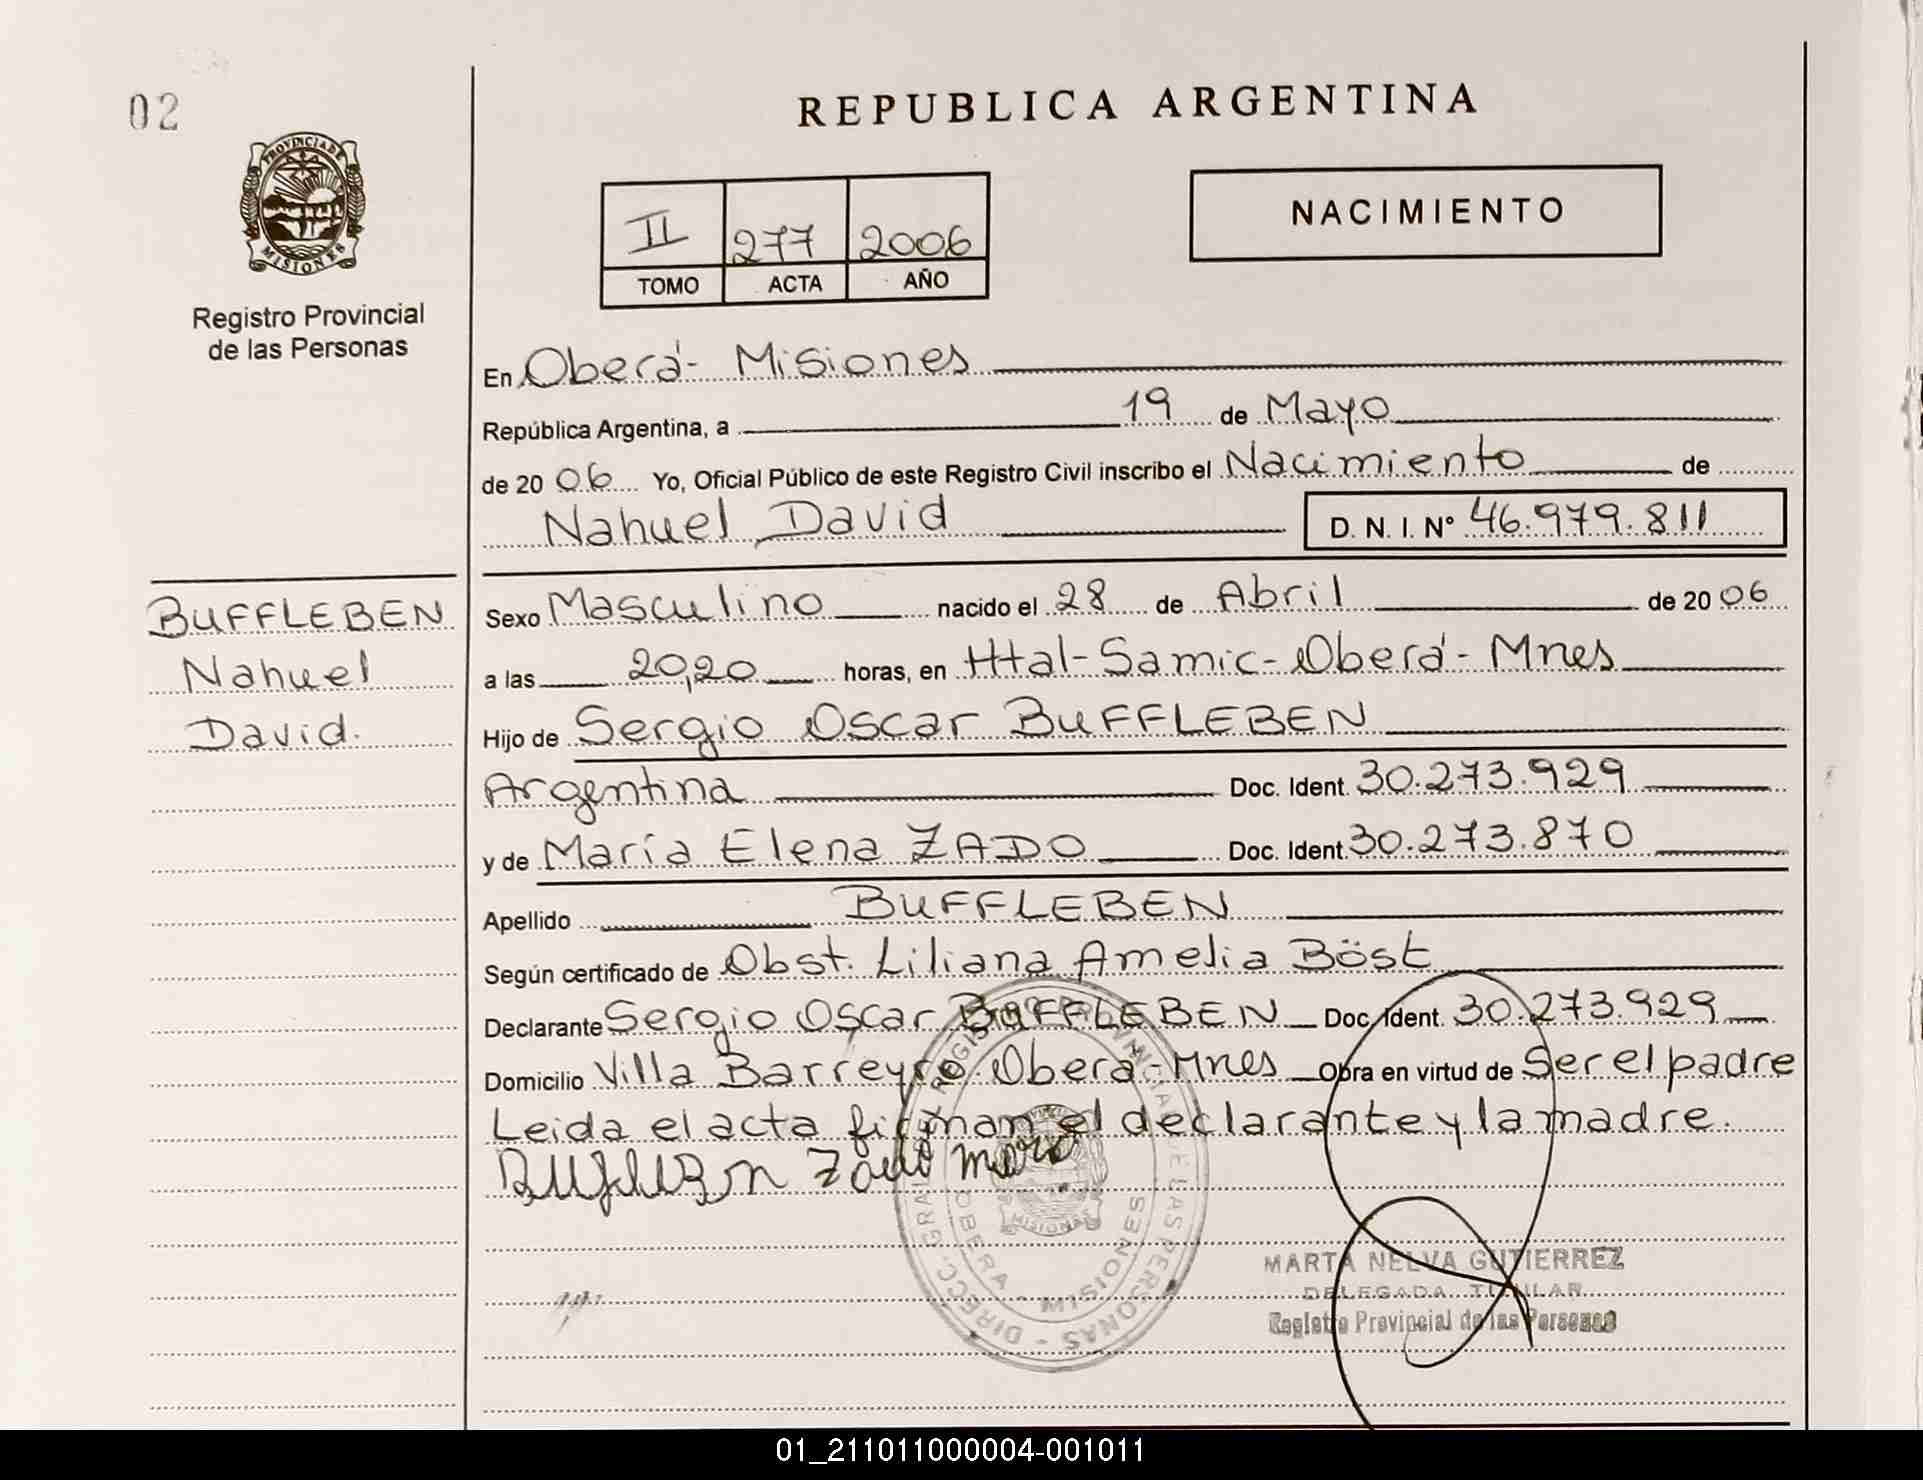 02
REPUBLICA ARGENTINA
PROVINCIA DE
MISIONES
Registro Provincial
de las Personas
II 277 2006
TOMO ACTA AÑO
NACIMIENTO
En Oberá- Misiones
República Argentina, a 19 de Mayo
de 20 06 Yo, Oficial Público de este Registro Civil inscribo el Nacimiento de
Nahuel David D. N. I. N° 46.979.811
BUFFLEBEN
Nahuel
David.
Sexo Masculino nacido el 28 de Abril de 20 06
a las 20,20 horas, en Htal-Samic-Oberá- Mnes
Hijo de Sergio Oscar BUFFLEBEN
Argentina Doc. Ident. 30.273.929
y de María Elena ZADO Doc. Ident. 30.273.870
Apellido BUFFLEBEN
Según certificado de Obst. Liliana Amelia Böst
Declarante Sergio Oscar BUFFLEBEN Doc. Ident. 30.273.929
Domicilio Villa Barreyro Oberá-Mnes Obra en virtud de Ser el padre
Leida el acta firman el declarante y la madre.
Zado
DIRECC. GRAL. REGISTRO PROVINCIAL DE LAS PERSONAS -
OBERA - MISIONES
MISIONES
MARTA NELVA GUTIERREZ
DELEGADA TITULAR
Registro Provincial de las Personas
01_211011000004-001011